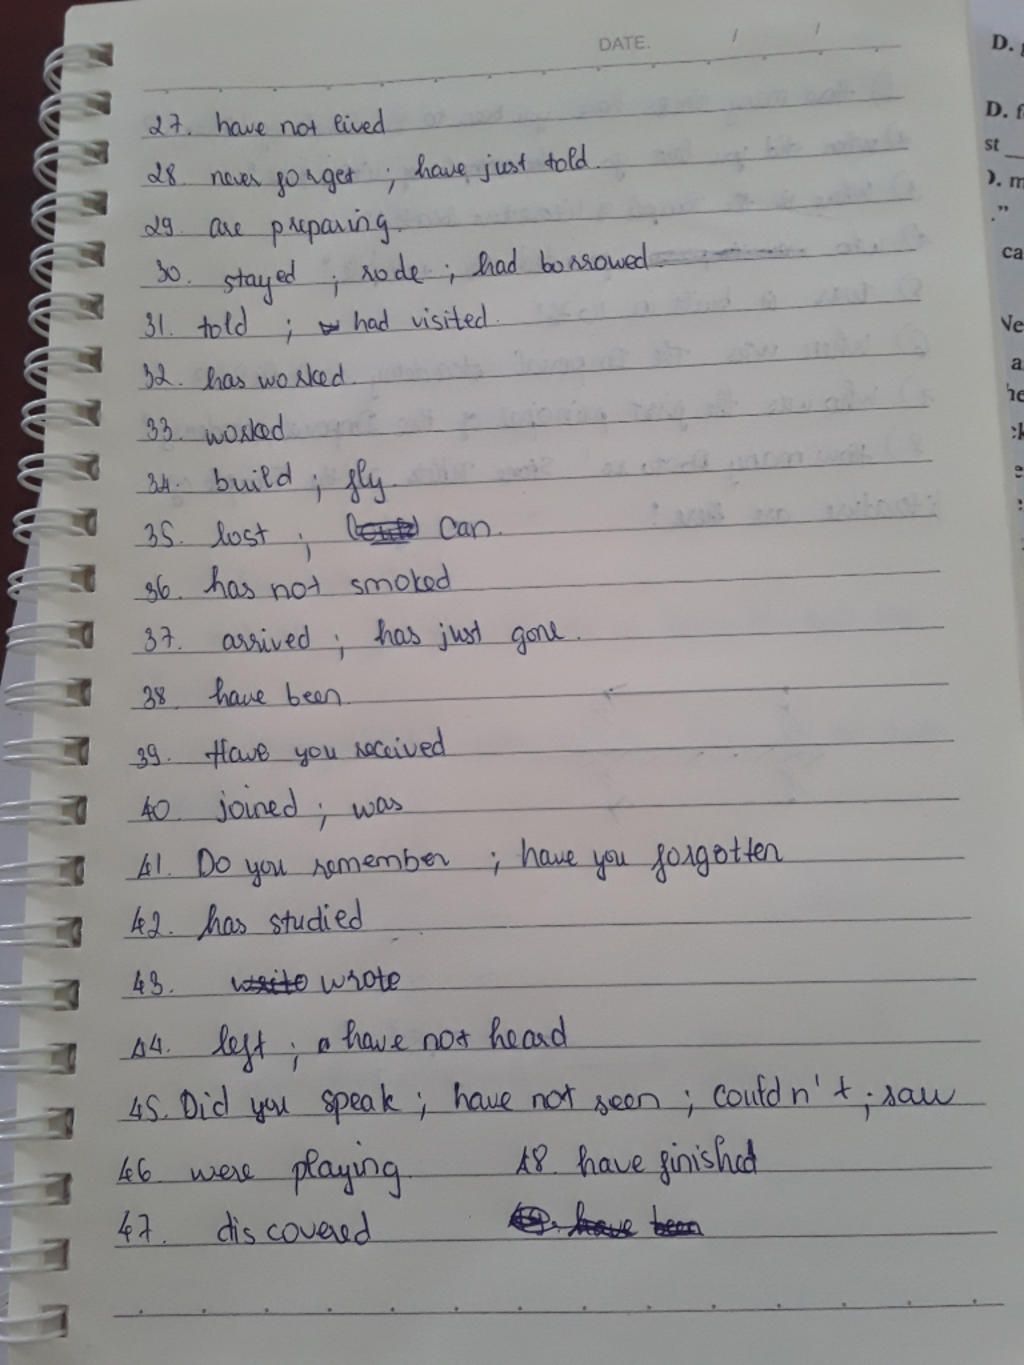 DATE. / /
27. have not lived
28. never forget ; have just told.
29. are preparing.
30. stayed ; rode ; had borrowed
31. told ; had visited.
32. has worked.
33. worked
34. build ; fly.
35. lost ; can.
36. has not smoked
37. arrived ; has just gone.
38. have been.
39. Have you received
40. joined ; was
41. Do you remember ; have you forgotten
42. has studied
43. write wrote
44. left ; have not heard
45. Did you speak ; have not seen ; couldn't ; saw
46. were playing. 48. have finished
47. discovered 49. have been
D.
D. f
st
). m
."
ca
Ve
a
he